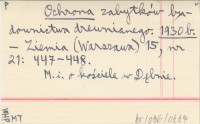 Ochrona zabytków bu-
downictwa drewnianego. 1930 b.
– Ziemia (Warszawa) 15, nr
21: 447–448.
M. i. o kościele w Dębnie.
MT